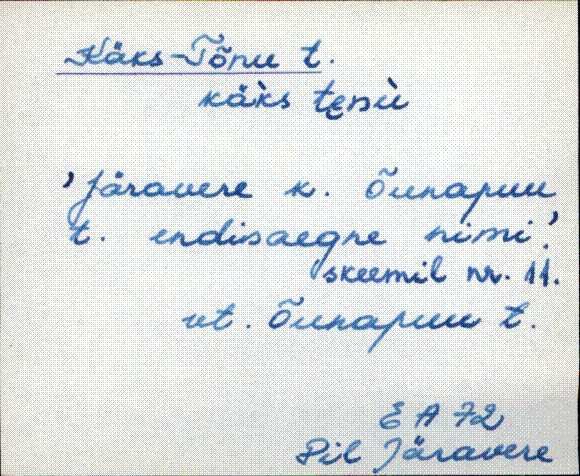 Käks-Tõnu t.
käk̀s tęnù
'Järavere k. Õunapuu
t. endisaegne nimi'.
skeemil nr. 11.
vt. Õunapuu t.
EA 72
Pil Järavere